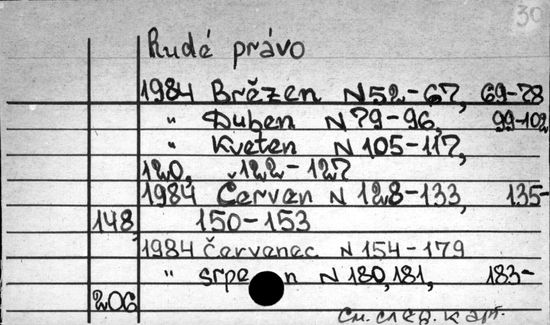 30
Rudé právo
1984 Březen N 52-67, 69-78
" Duben N 79-96, 99-102
" Květen N 105-117,
120, 122-127
1984 Červen N 128-133, 135-
148, 150-153
1984 červenec N 154-179
" srpen N 180,181, 183-
206
См. след. карт.